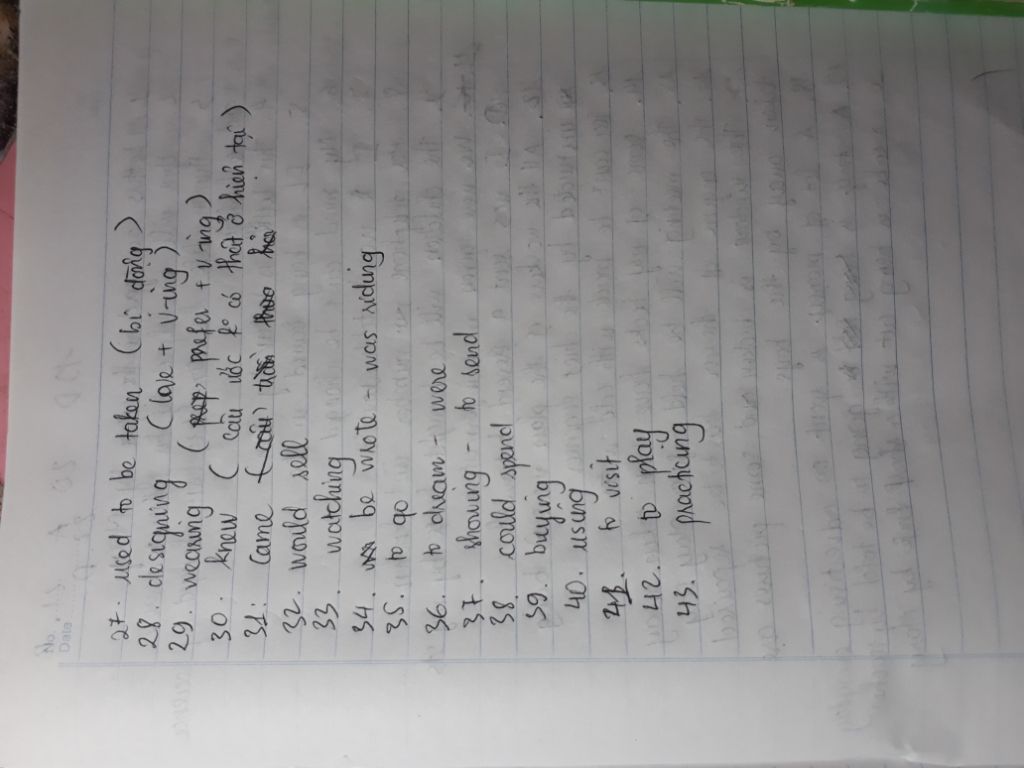 No.
Date
27. used to be taken (bị động)
28. designing (love + v-ing)
29. wearing (prefer + v-ing)
30. knew (câu ước ko có thật ở hiện tại)
31. came
32. would sell
33. watching
34. be wrote - was riding
35. to go
36. to dream - were
37. showing - to send
38. could spend
39. buying
40. using
41. to visit
42. to play
43. practicing